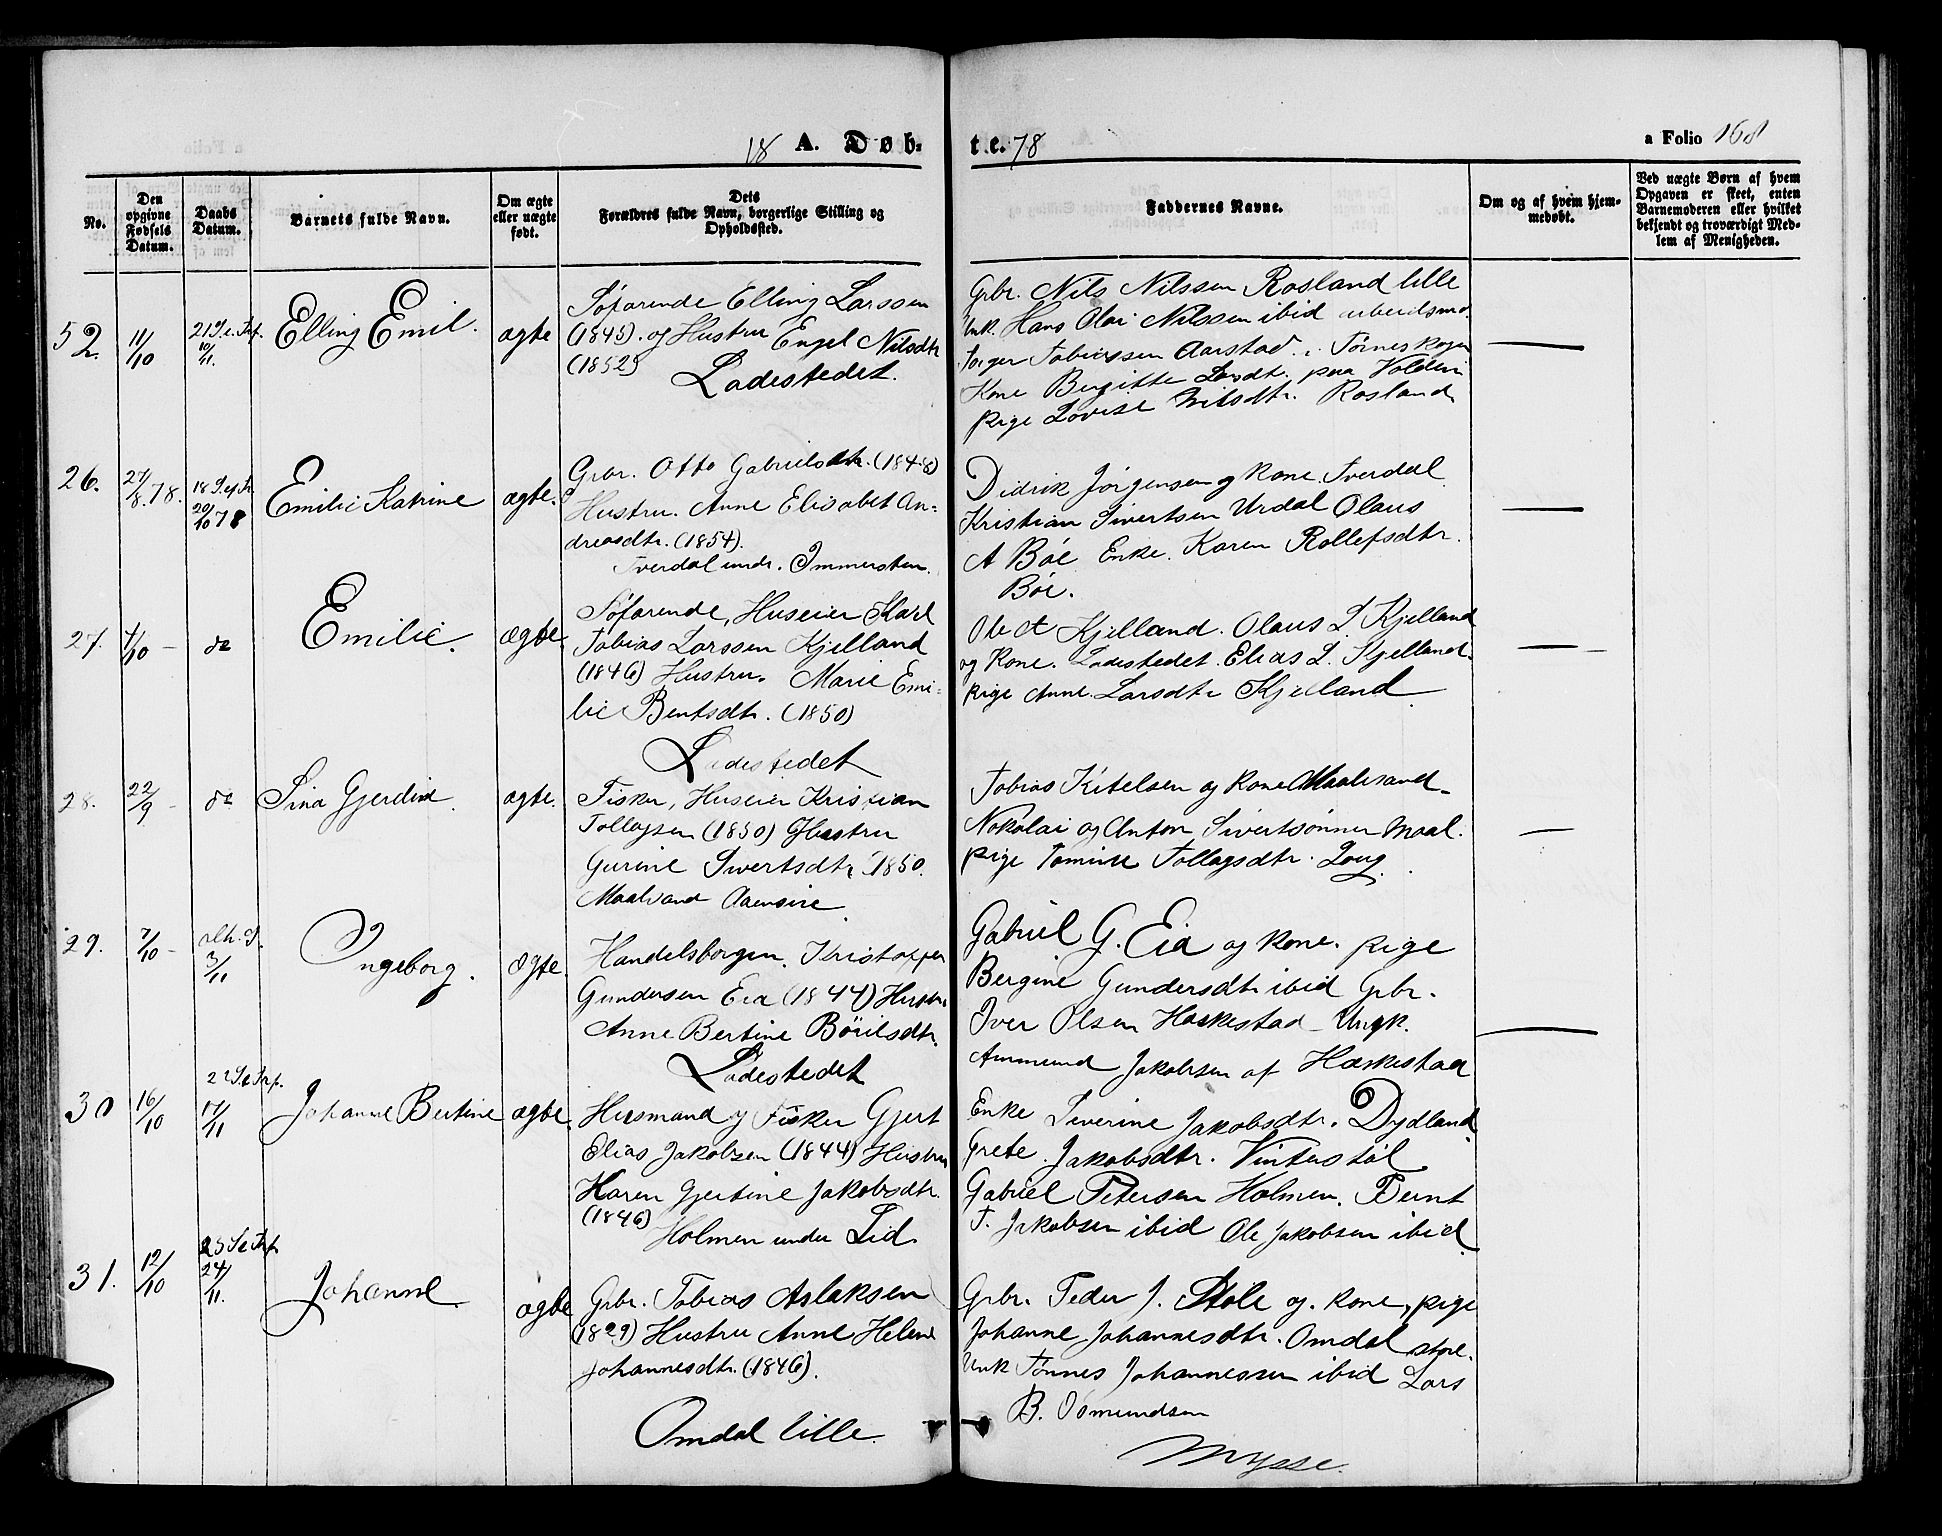 18 A. Døb-
te. 78
a Folio 168
No.
Den opgivne Fødsels Datum.
Daabs Datum.
Barnets fulde Navn.
Om ægte eller uægte født.
Dets Forældres fulde Navn, borgerlige Stilling og Opholdssted.
Faddernes Navne.
Om og af hvem hjemmedøbt.
Ved uægte Børn af hvem Opgaven er skeet, enten Barnemoderen eller hvilket bekjendt og troværdigt Medlem af Menigheden.
52. 11/10 21 S. e. Trf. 10/11. Elling Emil. ægte
Søfarende Elling Larssen
(1845). og Hustru Engel Nilsdtr
(1852)
Ladestedet.
Grbr. Nils Nilssen Rosland lille
Unk. Hans Olai Nilssen ibid arbeidsmd.
Torger Tobiassen Aarstad.
Kone Bergitte Larsdt. paa Volden
Pige Lovise Nilsdtr. Rosland
26. 27/8. 78. 18 S. ef Tr 20/10 78 Emilie Katrine ægte.
Grbr. Otto Gabrielsdtr. (1848)
Hustru. Anne Elisabet An-
dreasdtr. (1854).
Tverdal undr. Immersten.
Didrik Jørgensen og Kone Tverdal
Kristian Sivertsen Urdal Olaus
A Bøe Enke. Karen Rollefsdtr.
Bøe.
27. 4/10 – do Emilie. ægte.
Søfarende, Huseier Karl
Tobias Larssen Kjelland
(1846) Hustru. Marie Emi-
lie Bentsdtr. (1850)
Ladestedet
Ole A Kjelland. Olaus L. Kjelland
og Kone. Ladestedet. Elias L. Kjelland.
Pige Anne Larsdtr Kjelland
28. 22/9 – do Sina Gjerdine ægte.
Fisker, Huseier Kristian
Tollagsen (1850) Hustru
Gurine Sivertsdtr 1850.
Maalvand Aaensire.
Tobias Kitelsen og Kone Maalvand
Nokolai og Anton Sivertsønner Maal.
Pige Tomine Tollagsdtr. Log.
29. 7/10 – alh. S. 3/11 Ingeborg. ægte.
Handelsborger. Kristoffer
Gundersen Eia (1844) Hustr.
Anne Bertine Børilsdtr.
Ladestedet
Gabriel G. Eia og Kone. Pige
Bergine Gundersdtr ibid Grbr.
Iver Olsen Haskestad – Ungk.
Ammund Jakobsen af Haskestad
30 16/10 22 S. e Trf. 17/11 Johanne Bertine ægte.
Husmand og Fisker Gjert
Elias Jakobsen (1844) Hustru
Karen Gjertine Jakobsdtr.
(1846)
Holmen under Lid.
Enke Severine Jakobsdtr. Dydland
Grete Jakobsdtr. Vinterstøl
Gabriel Petersen Holmen. Bernt
T. Jakobsen ibid Ole Jakobsen ibid
31. 12/10 23 S e Trf. 24/11. Johanne. ægte
Grbr. Tobias Aslaksen
(1829) Hustru Anne Helene
Johannesdtr. (1846).
Omdal lille.
Grbr. Peder J. Støle og Kone, Pige
Johanne Johannesdtr. Omdal store.
Unk Tønnes Johannessen ibid Lars
B. Osmundsen
Mysse.